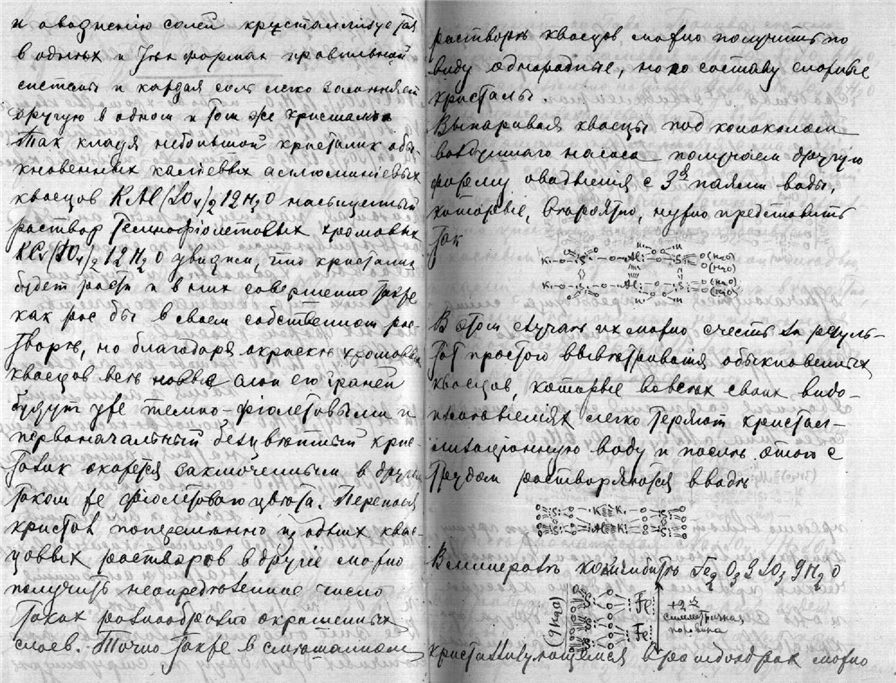 и оводненію солей кристаллизуются
в однѣх и тѣх формах правильной
системы и каждая соль легко замѣняет
другую в одном и том же кристаллѣ
Так кладя небольшой кристалик обы
кновенных каліевых аллюминіевых
квасцов KAl(SO4)2 12H2O насыщенный
раствор темнофіолетовых хромовых
KCr(SO4)2 12H2O увидим, что кристалик
будет расти и в них совершенно также
как рос бы в своем собственном рас
творѣ, но благодаря окраскѣ хромовых
квасцов всѣ новые слои его граней
будут уже темно-фіолетовыми и
первоначальный безцвѣтный крис
талик окажется заключенным в другом
таком же фіолетоваго цвѣта. Перенося
кристал поперемѣнно из одних квас-
цовых растворов в другіе можно
получить неопредѣленное число
таких разнообразно окрашенных
слоев. Точно также в смѣшанном
растворѣ квасцов можно получить по
виду однородные, но по составу сложные
кристалы.
Выпаривая квасцы под колоколом
воздушнаго насоса получаем другую
форму оводненія с 3мя паями воды,
которые, вѣроятно, нужно представить
так
O(H2O)
(H2O)
O(H2O)
В этом случаѣ их можно счесть за резуль-
тат простого вывѣтриванія обыкновенных
квасцов, которые во всѣх своих видо-
измѣненіях легко теряют кристал-
лизаціонную воду и послѣ этого с
трудом растворяются в водѣ
В минералѣ кокимбитѣ Fe2O3 3SO3 9H2O
(9H2O) Fe +2я
Fe симметричная
половина
кристаллизующемся в ромбоэдрах можно